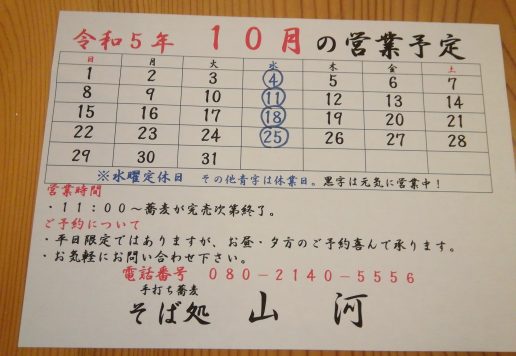 令和5年 10月の営業予定
日 月 火 水 木 金 土
1 2 3 4 5 6 7
8 9 10 11 12 13 14
15 16 17 18 19 20 21
22 23 24 25 26 27 28
29 30 31
※水曜定休日 その他青字は休業日。黒字は元気に営業中!
営業時間
・11:00~蕎麦が完売次第終了。
ご予約について
・平日限定ではありますが、お昼・夕方のご予約喜んで承ります。
・お気軽にお問い合わせ下さい。
電話番号 080-2140-5556
手打ち蕎麦
そば処 山河